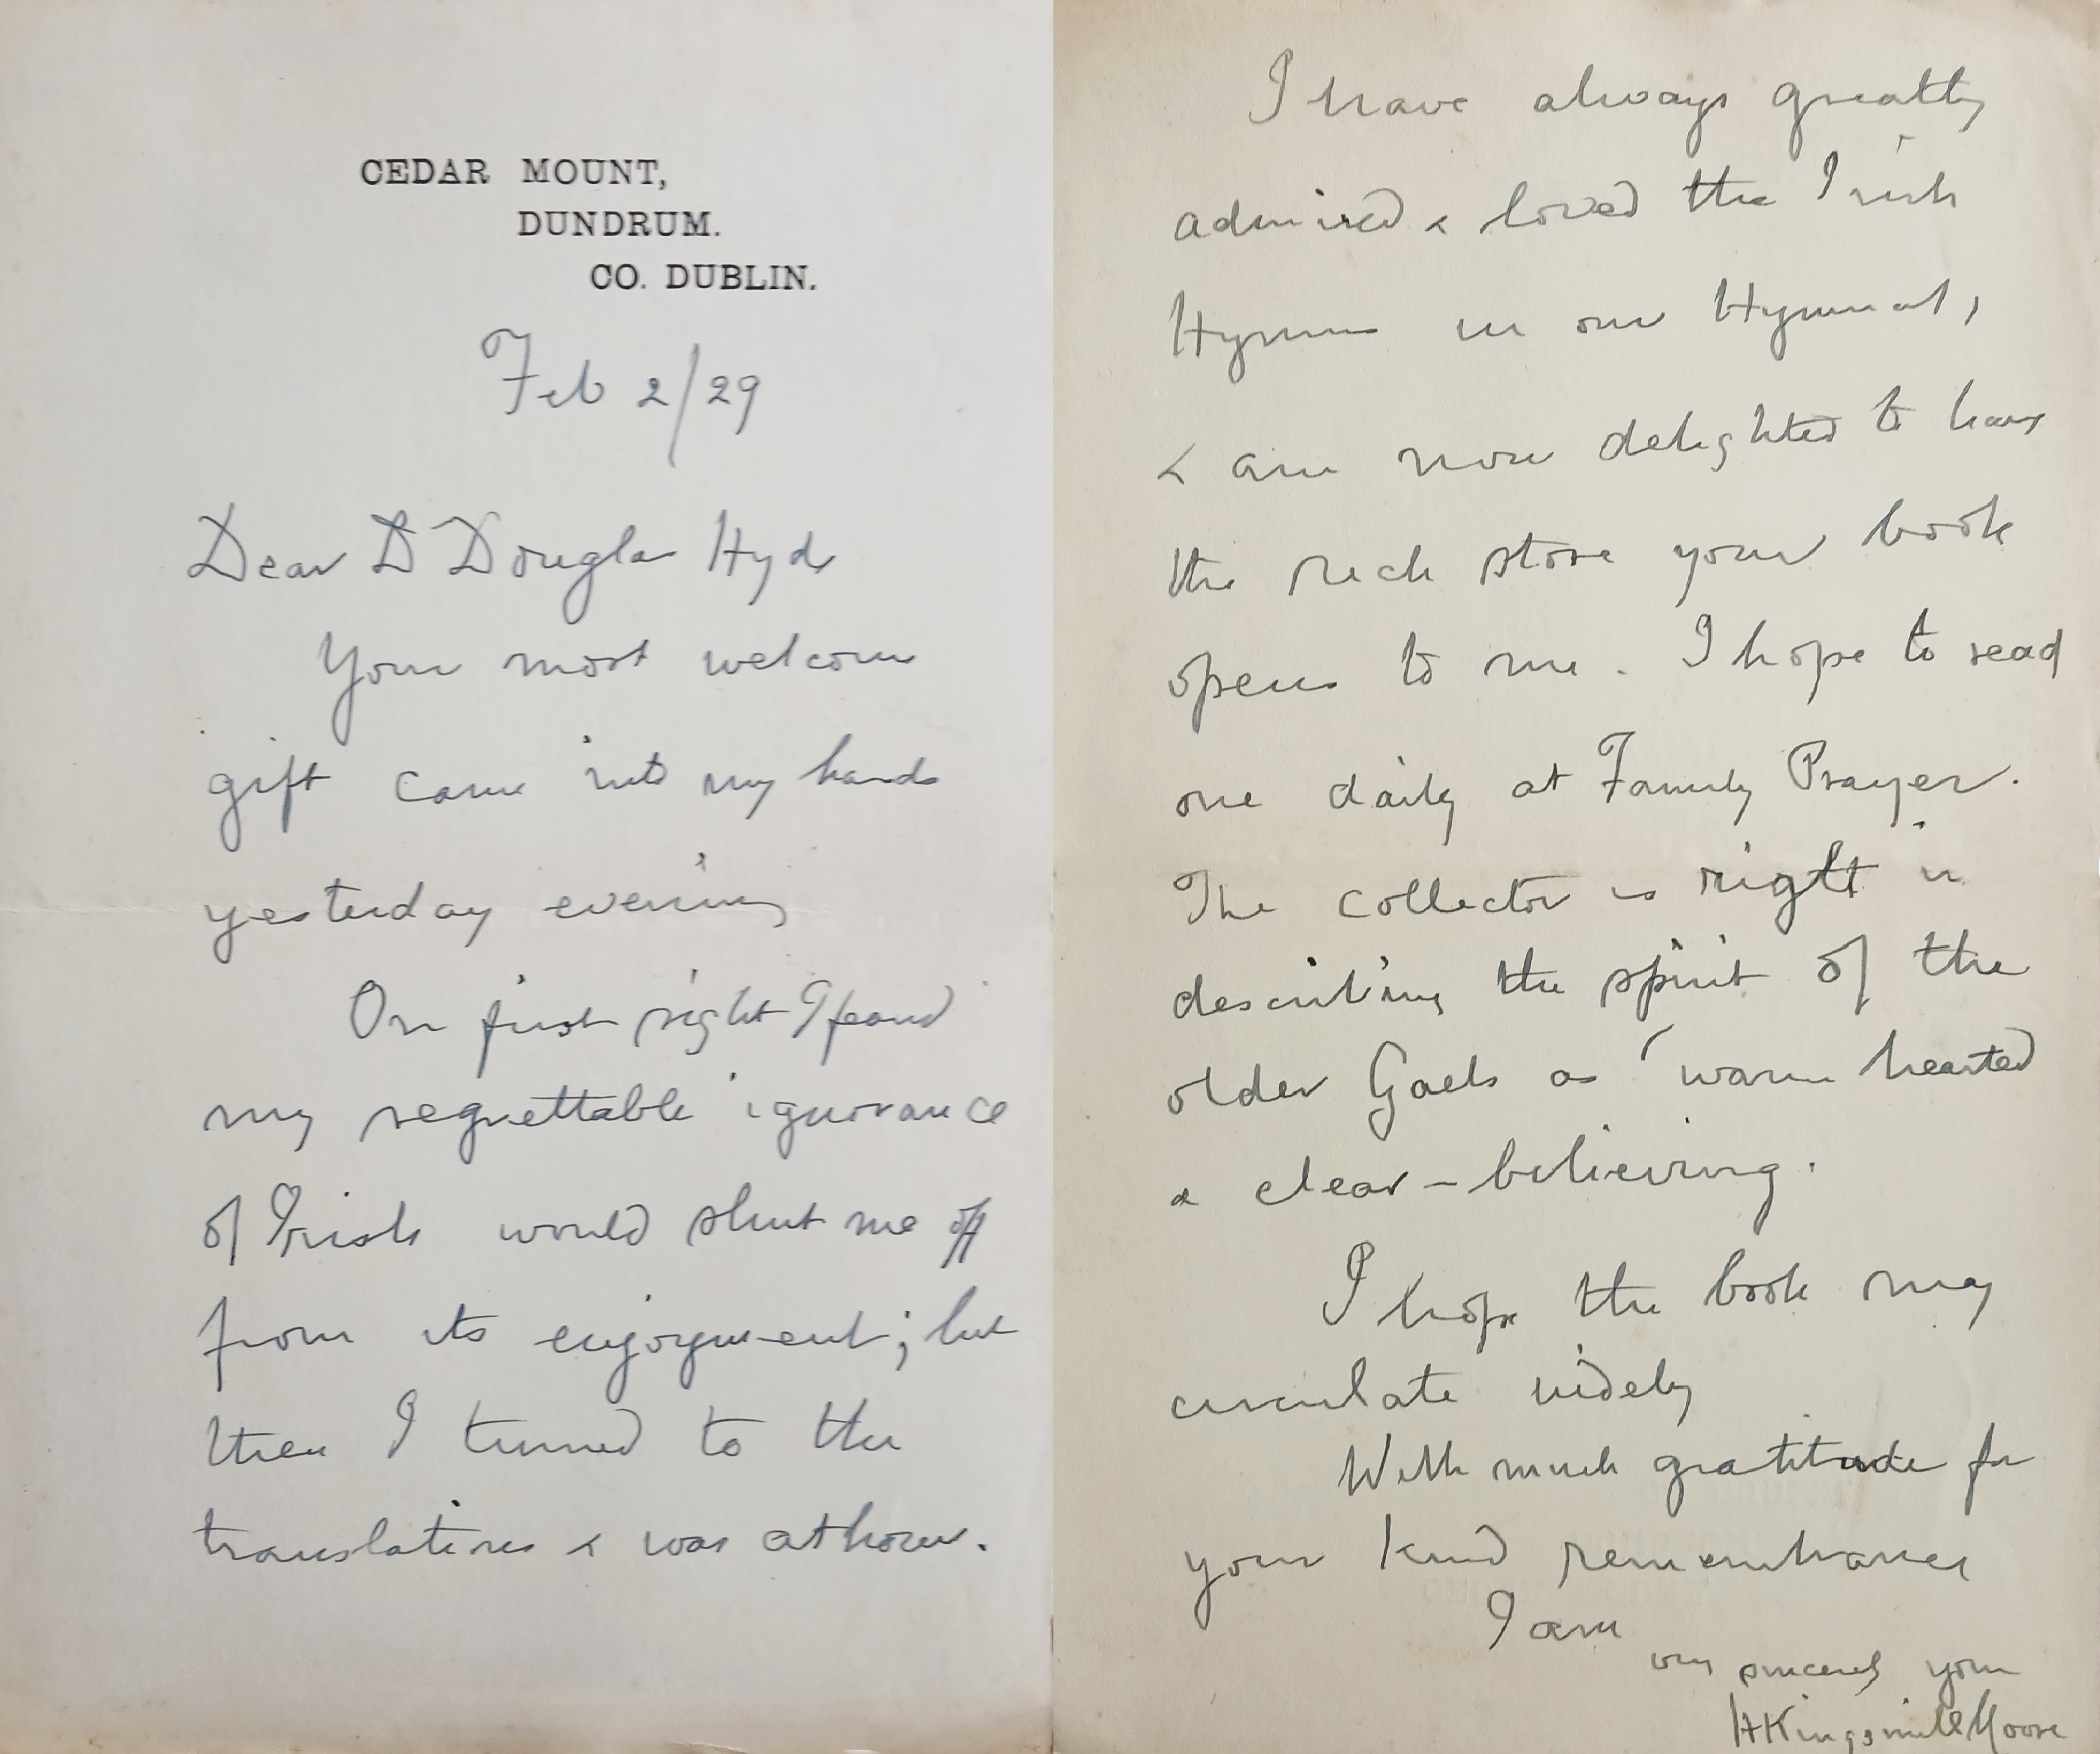 CEDAR MOUNT,
DUNDRUM.
CO. DUBLIN.
Feb 2/29
Dear Dr Douglas Hyde
Your most welcome
gift came into my hands
yesterday evening
On first sight I feared
my regrettable ignorance
of Irish would shut me off
from its enjoyment; but
then I turned to the
translations & was at home.
I have always greatly
admired & loved the Irish
Hymns in our Hymnal,
& am now delighted to have
the rich store your book
opens to me. I hope to read
one daily at Family Prayer.
The collector is right in
describing the spirit of the
older Gaels as ' warm hearted
& clear-believing.
I hope the book may
circulate widely
With much gratitude for
your kind remembrance
I am
very sincerely yours
HKingsmill Moore